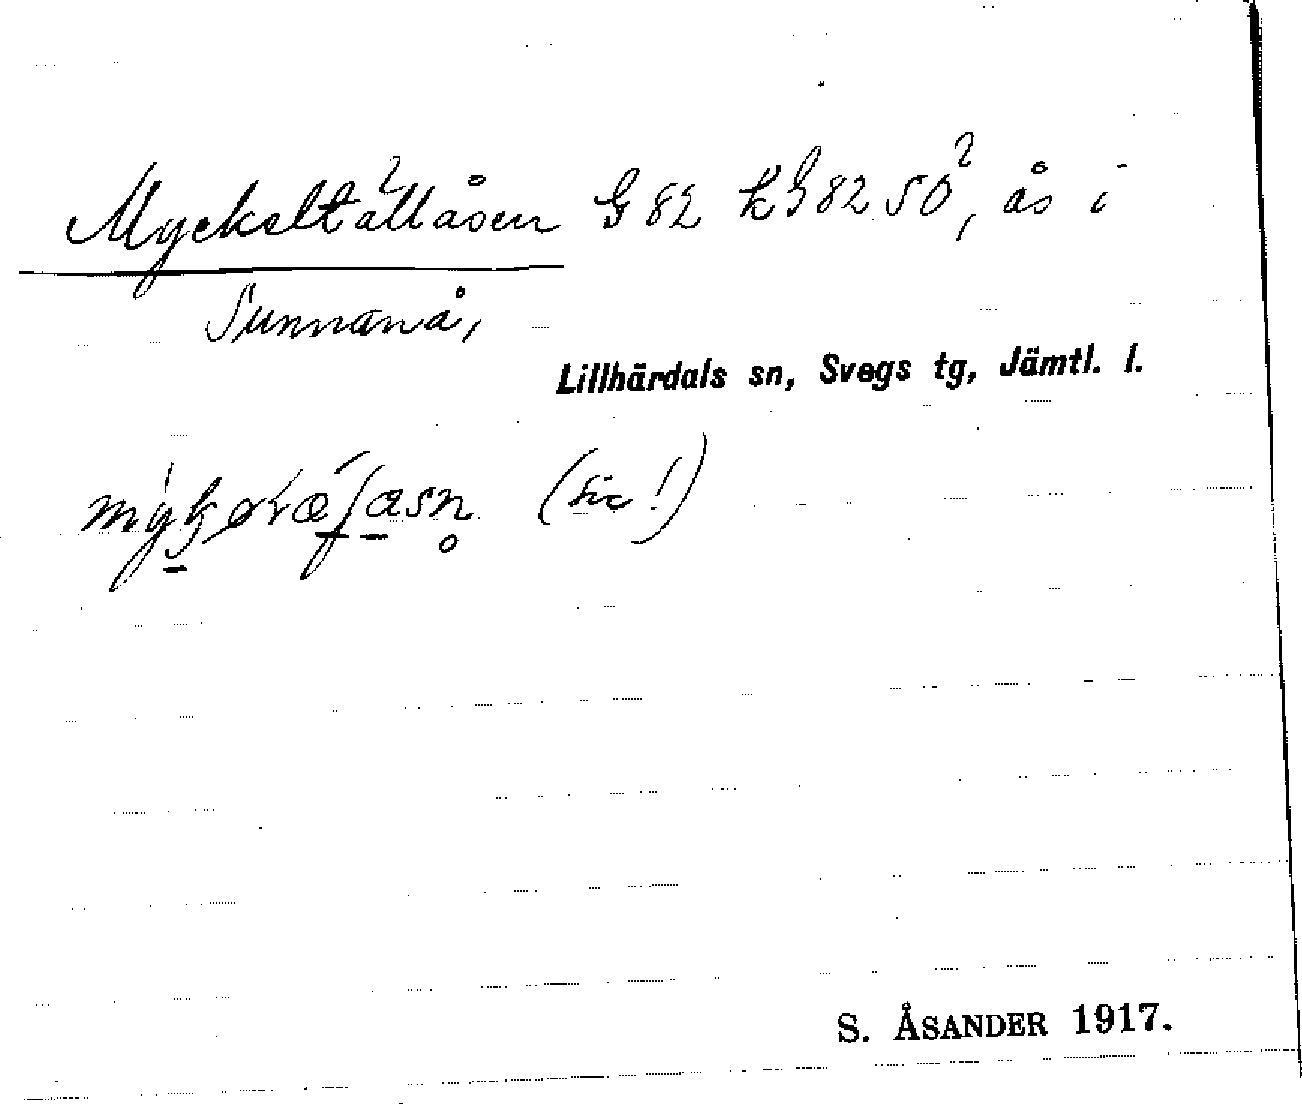 Myckeltållåsen G 82 kG 82 50?, ås i
Sunnanå,
Lillhärdals sn, Svegs tg, Jämtl. l.
(sic!)
S. ÅSANDER 1917.